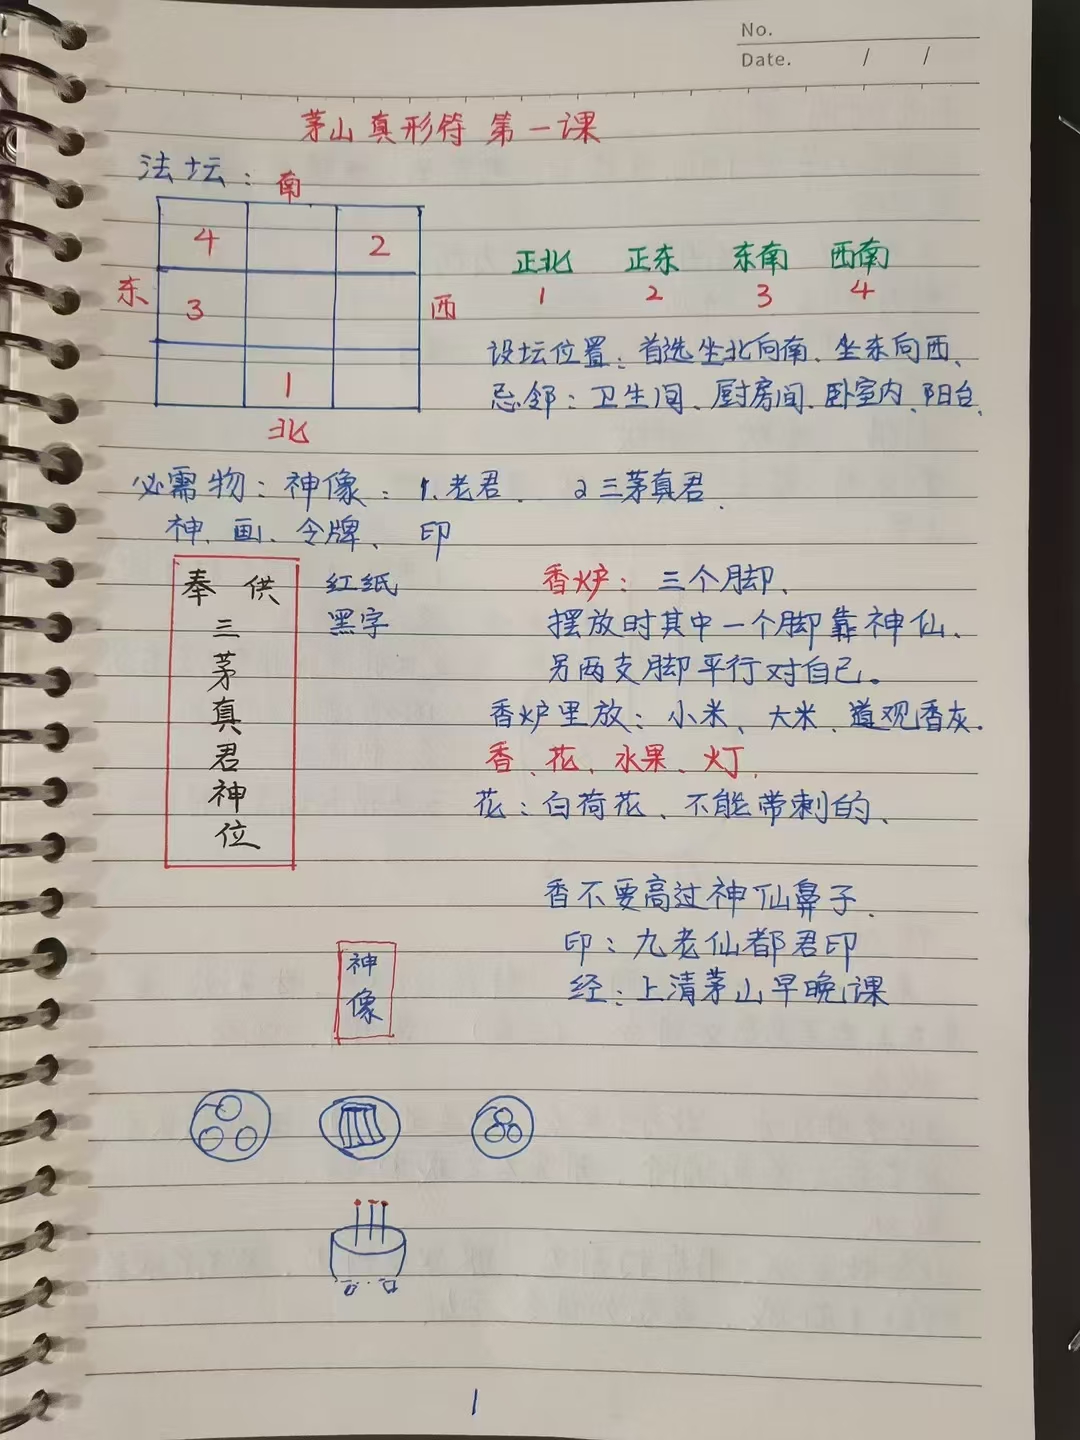 No.
Date. / /
茅山真形符 第一课
法坛:
南
4 2
东 3 西
1
北
正北 正东 东南 西南
1 2 3 4
设坛位置:首选坐北向南、坐东向西、
忌邻:卫生间、厨房间、卧室内、阳台、
必需物:神像:1.老君. 2三茅真君.
神、画、令牌、印
奉 供
三
茅
真
君
神
位
红纸
黑字
香炉:三个脚、
摆放时其中一个脚靠神仙、
另两支脚平行对自己。
香炉里放:小米、大米、道观香灰.
香、花、水果、灯、
花:白荷花、不能带刺的、
香不要高过神仙鼻子.
印:九老仙都君印
经:上清茅山早晚课
神
像
1